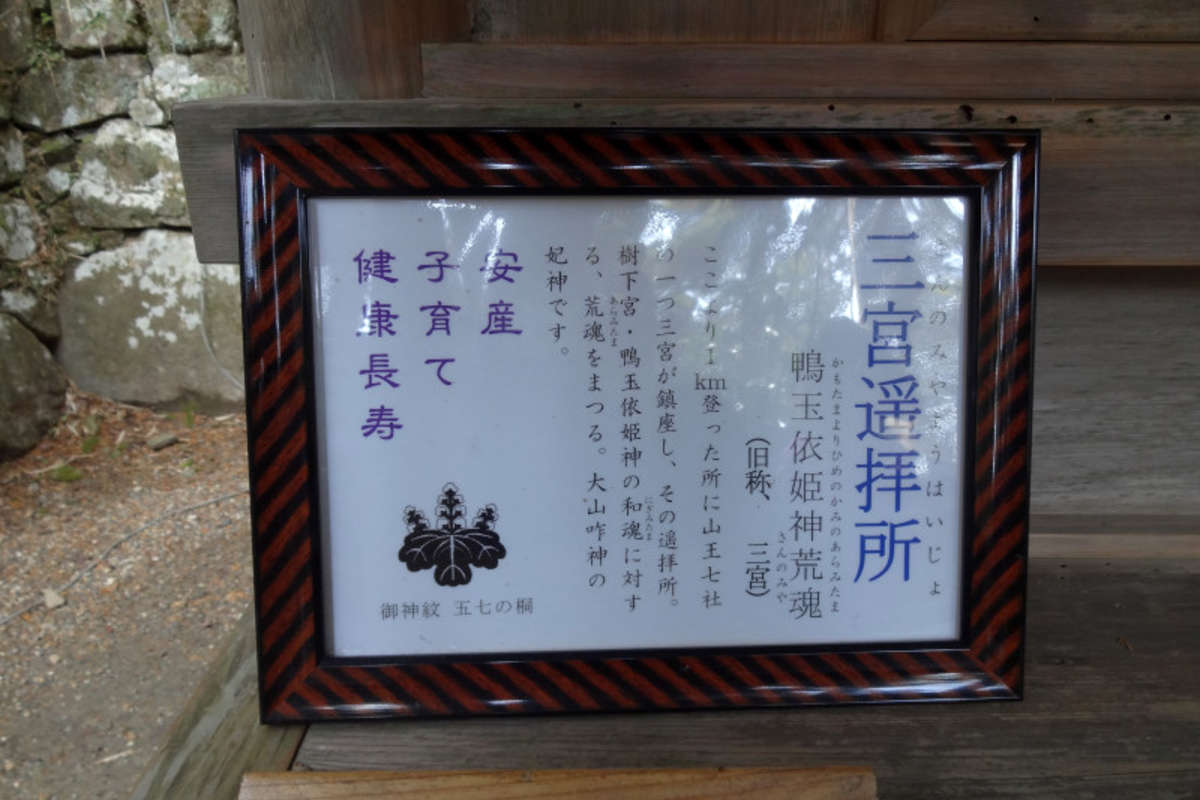 三宮遥拝所
んのみやようはいじょ
鴨玉依姫神荒魂
かもたまよりひめのかみのあらみたま
(旧称、三宮)
さんのみや
ここより1km登った所に山王七社
の一つ三宮が鎮座し、その遥拝所。
樹下宮・鴨玉依姫神の和魂に対す
にぎみたま
る、荒魂をまつる。大山咋神の
あらみたま
妃神です。
安産
子育て
健康長寿
御神紋 五七の桐